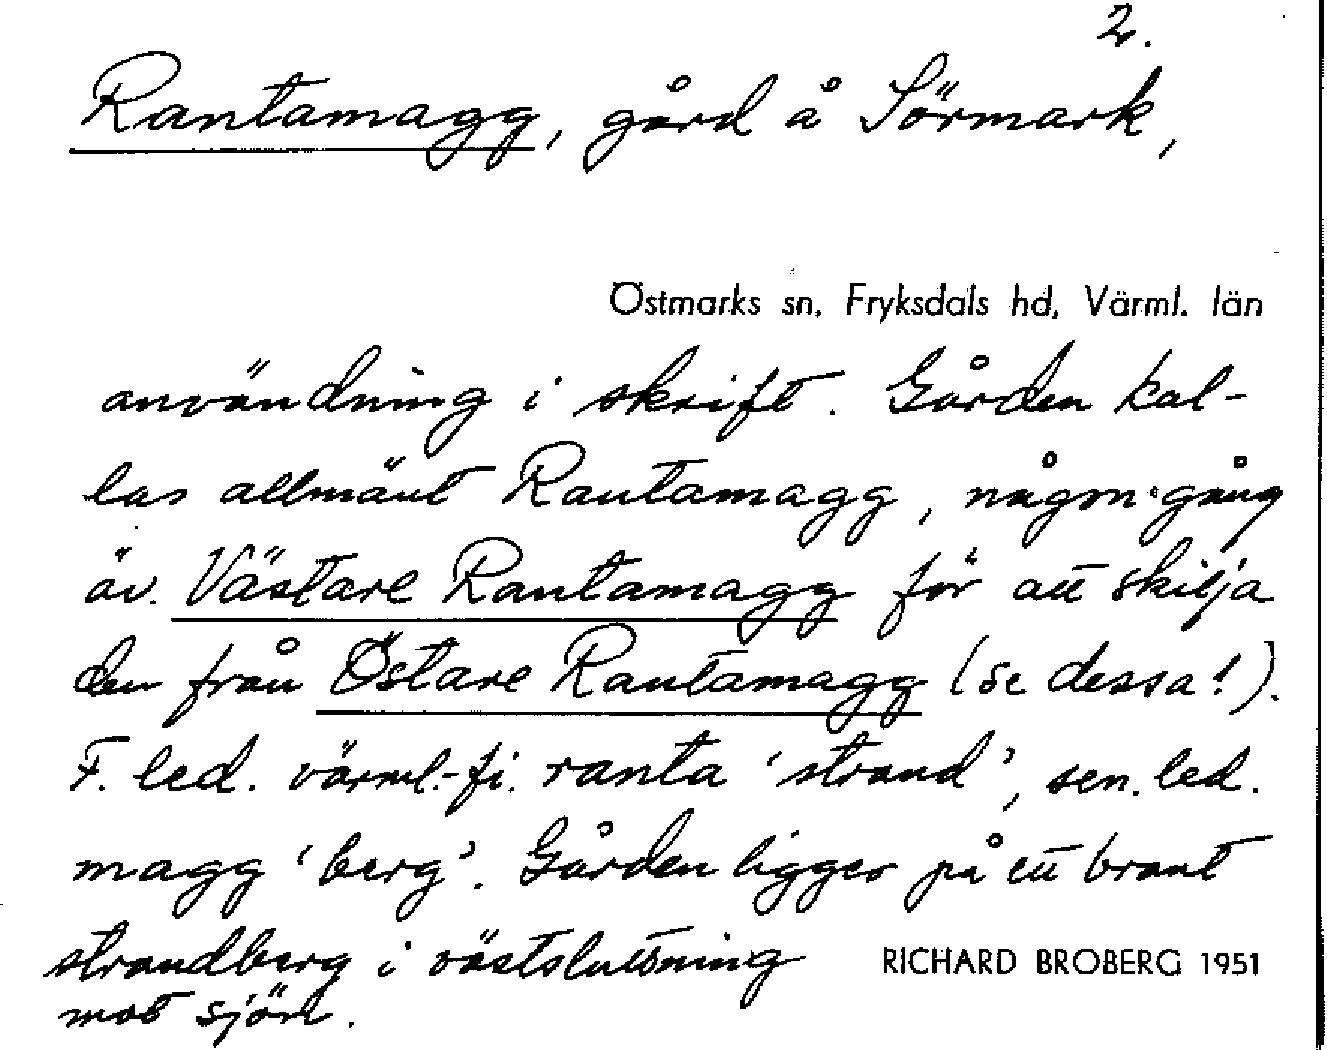 2.
Rantamagg, gård å Sörmark,
Östmarks sn, Fryksdals hd, Värml. län
användning i skrift. Gården kal-
las allmänt Rantamagg, någon gång
äv. Västare Rantamagg för att skilja
den från Östare Rantamagg (se dessa!).
F. led. värml.-fi. ranta 'strand', sen. led.
magg 'berg'. Gården ligger på ett brant
strandberg i västsluttning
RICHARD BROBERG 1951
mot sjön.